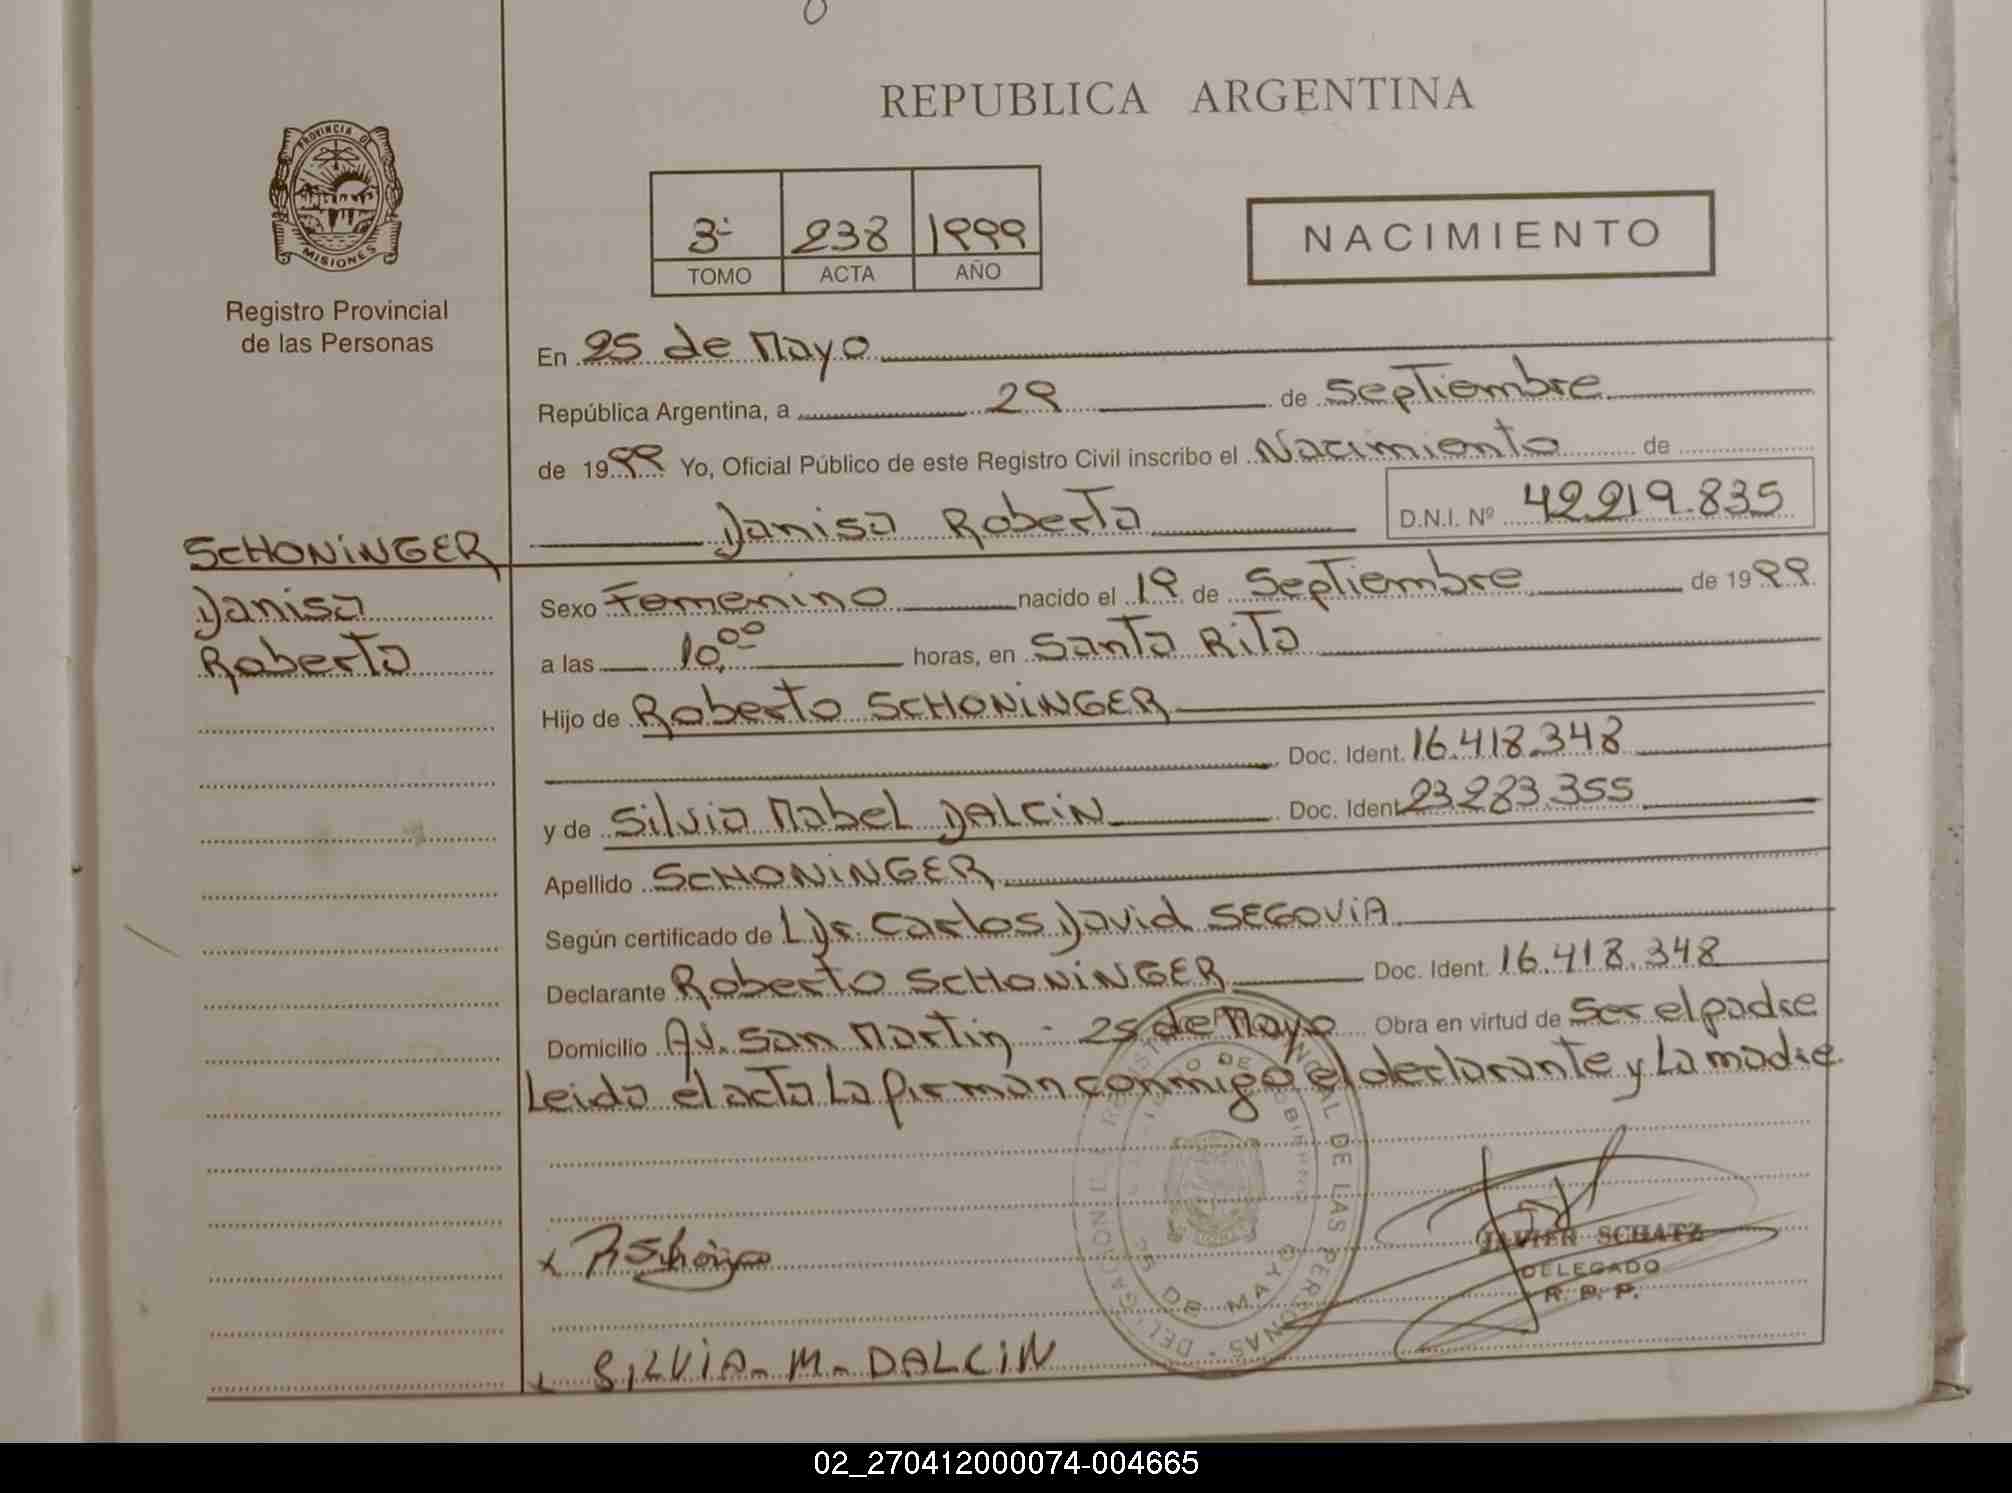 REPUBLICA ARGENTINA
PROVINCIA DE
MISIONES
Registro Provincial
de las Personas
3º 238 1999
TOMO ACTA AÑO
NACIMIENTO
En 25 de Mayo
República Argentina, a 29 de Septiembre
de 1999 Yo, Oficial Público de este Registro Civil inscribo el Nacimiento de
Danisa Roberta D.N.I. Nº 42.219.835
SCHONINGER
Danisa
Roberta
Sexo Femenino nacido el 19 de Septiembre de 1999
a las 10,00 horas, en Santa Rita
Hijo de Roberto SCHONINGER
Doc. Ident. 16.418.348
y de Silvia Mabel DALCIN Doc. Ident. 23.283.355
Apellido SCHONINGER
Según certificado de L Dr. Carlos David SEGOVIA
Declarante Roberto SCHONINGER Doc. Ident. 16.418.348
Domicilio Av. San Martin - 25 de Mayo Obra en virtud de ser el padre
Leida el acta La firman conmigo el declarante y La madre.
DE LAS PERSONAS
25 DE MAYO
JAVIER SCHATZ
DELEGADO
R. P. P.
x
SILVIA - M - DALCIN
02_270412000074-004665